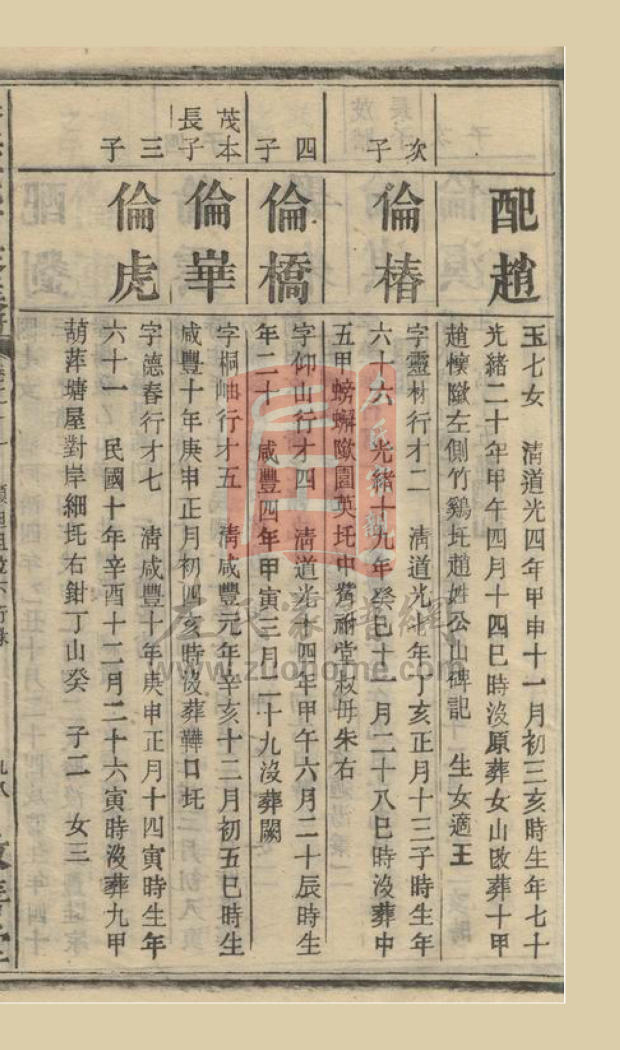 配趙
玉七女 清道光四年甲申十一月初三亥時生年七十
光緒二十年甲午四月十四巳時沒原葬女山改葬十甲
趙懷隞左側竹鷄圫趙姓公山碑記 生女適王
次子
倫椿
字靈材行才二 清道光七年丁亥正月十三子時生年
六十六 光緒十九年癸巳十一月二十八巳時沒葬中
五甲螃蠏隞園英圫中祔堂叔母朱右
四子
倫橋
字仰山行才四 清道光十四年甲午六月二十辰時生
年二十 咸豐四年甲寅三月二十九沒葬闕
茂本長子
倫華
字桐岫行才五 清咸豐元年辛亥十二月初五巳時生
咸豐十年庚申正月初四亥時沒葬韡口圫
三子
倫虎
字德春行才七 清咸豐十年庚申正月十四寅時生年
六十一 民國十年辛酉十二月二十六寅時沒葬九甲
葫蓱塘屋對岸細圫右鉗丁山癸 子二 女三
九八
左氏家譜網
www.zuohome.com